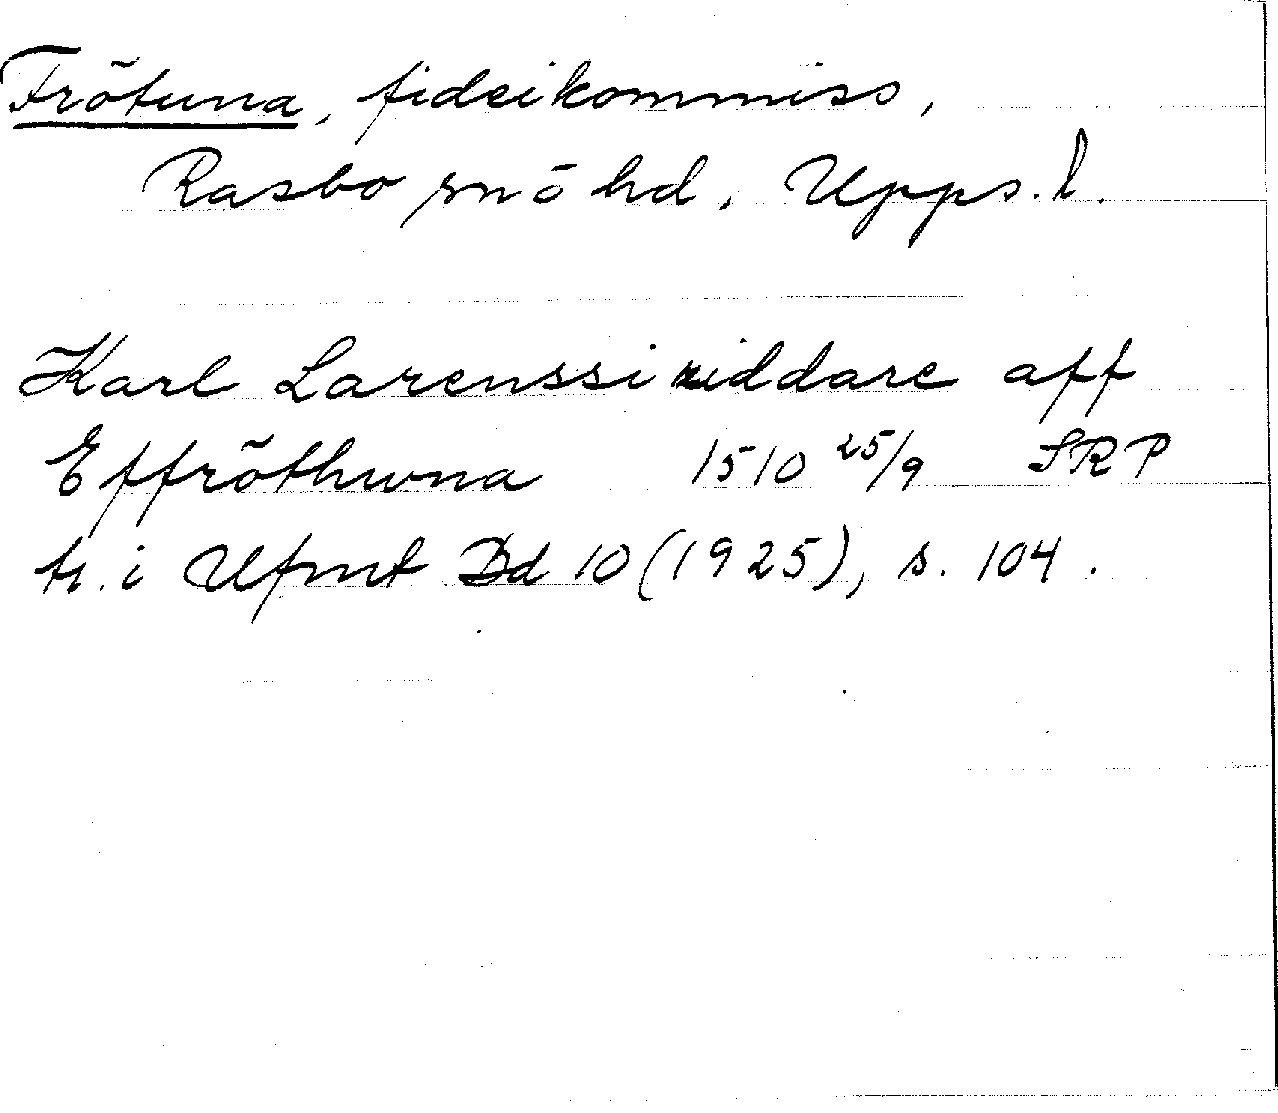 Frötuna, fideikommiss,
Rasbo sn o hd, Upps. l.
Karl Larenssi riddare aff
Effröthwna 1510 25/9 SRP
tr. i Ufmt Bd 10 (1925), s. 104.